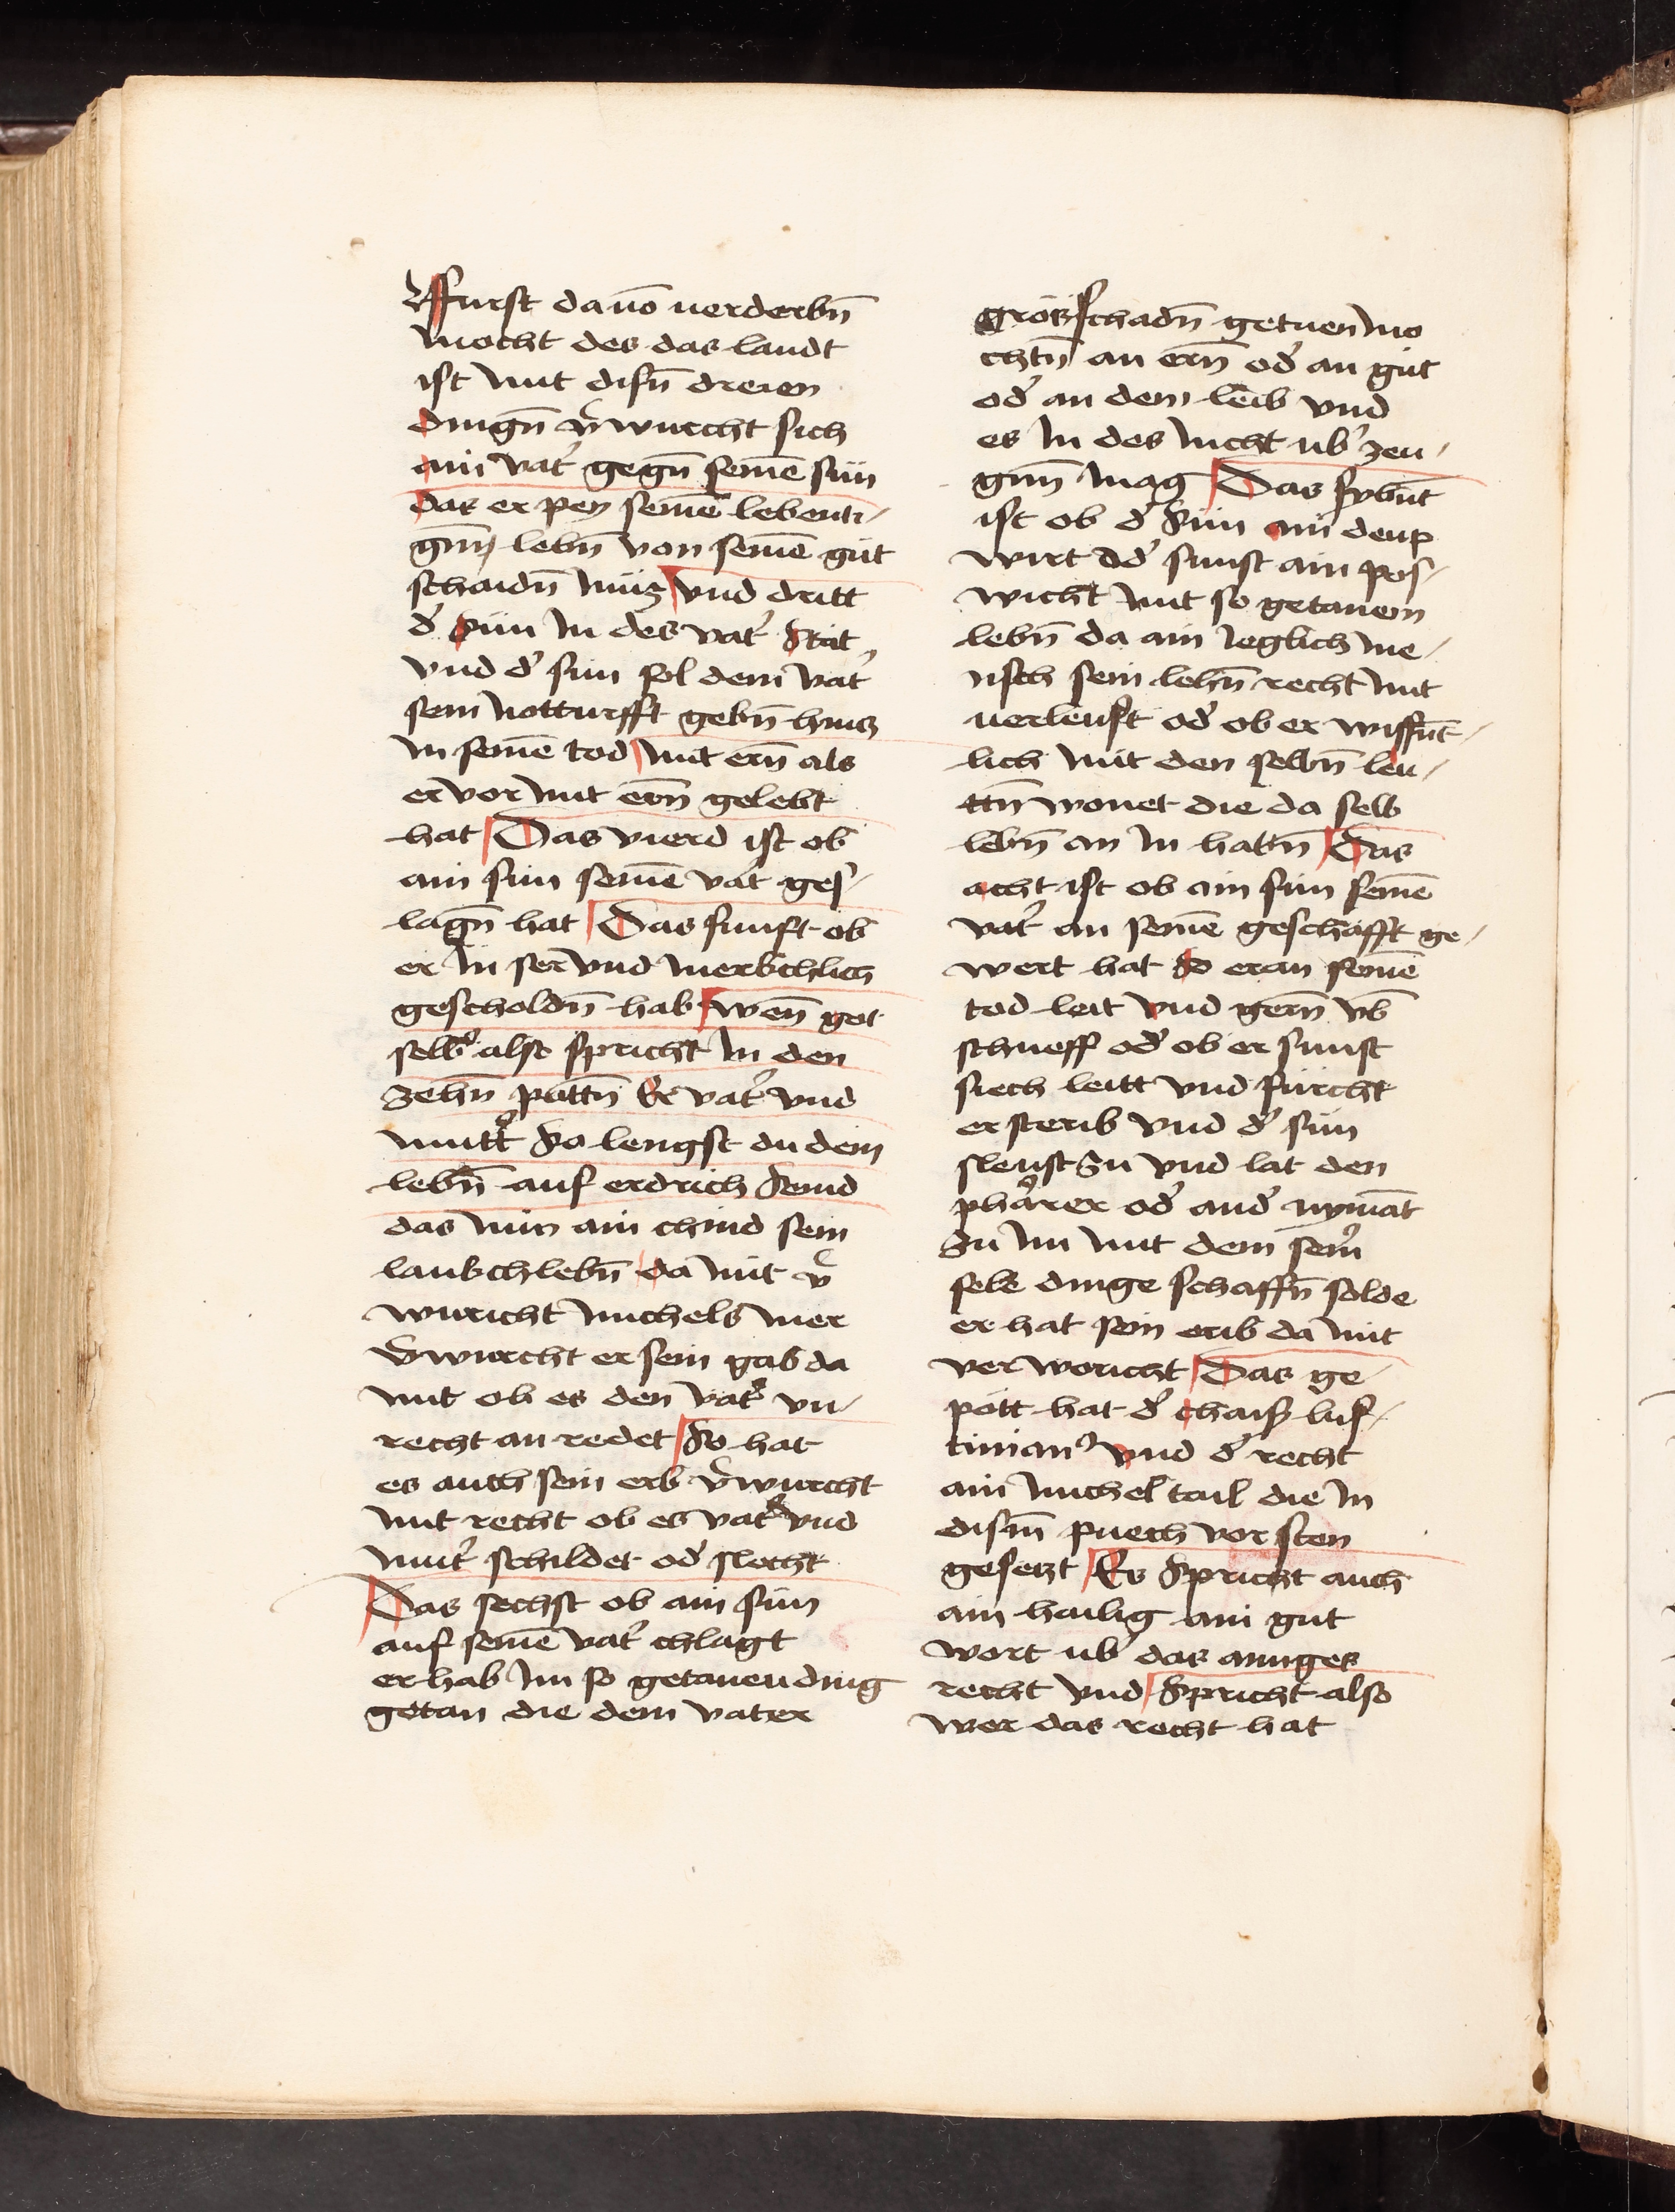 ffurst dauō uerderbn̄
mocht des das landt
ist mit disn̄ dreien
dingn̄ v̄wurcht sich
ain vat̉ gegn̄ seinē sun
das er pey seinē lebenti-
gm̄ lebn̄ von seinē gut
schaidn̄ muz vnd dritt
d̉ sun in des vat̉ stat
vnd d̉ sun sol dem vat̉
sein notturfft gebn̄ huncz
in seinē tod mit ern̄ als
er vor mit ern̄ gelebt
hat Das vierd ist ob
ain sun seinē vat̉ ges-
lagn̄ hat Das funft ob
er in ser vnd merkchlich
gescholdn̄ hab wen̄ got
selb̉ also spricht in den
zehn̄ pottn̄ Er vat̉ vnd
mutt̉ so lengst du dein
lebn̄ auf erdrich seind
das nun ain chind sein
lankchlebn̄ da mit v̄
wuricht michels mer
v̄wurcht er sein gab da
mit ob es den vat̉ vn-
recht an redet So hat
es auch sein erb v̄wurcht
mit recht ob es vat̉ vnd
mut̉ schildet od̉ slecht
Das sechst ob ain sun
auf seinē vat̉ chlagt
er hab im so getaneu ding
getan die dem vater
grosz schadn̄ getuen mo
chtn̄ an ern̄ od̉ an gut
od̉ an dem leib vnd
es in des nicht ub̉ zeu-
gnn̄ mag Das sybn̄t
ist ob d̉ sun ain deup
wirt od̉ sunst ain pos-
wicht mit so getanem
lebn̄ da ain ieglich me-
nsch sein lehn̄ recht mit
uerleust od̉ ob er wissn̄t-
lich mit den selbn̄ leu-
ttn̄ wonet die da selb
lebn̄ an in hattn̄ Das
acht ist ob ain sun seinē
vat̉ an seinē geschafft ge-
wert hat so er an seinē
tod leit vnd gern̄ vb̄
schueff od̉ ob er sunst
siech leitt vnd furcht
er sterib vnd d̉ sun
sleust zu vnd lat den
pharrer od̉ and̉ nymāt
zu im mit dem sein̉
sele dinge schaffn̄ solde
er hat sein erib da mit
verworicht Das ge-
pott hat d̉ chaiß Jus-
tinian̉ vnd d̉ recht
ain michel tail die in
dism̄ puech vor sten
gesetzt Es spricht auch
ain hailig ain gut
wort ub̉ das ainges
recht vnd spricht also
wer das recht hat